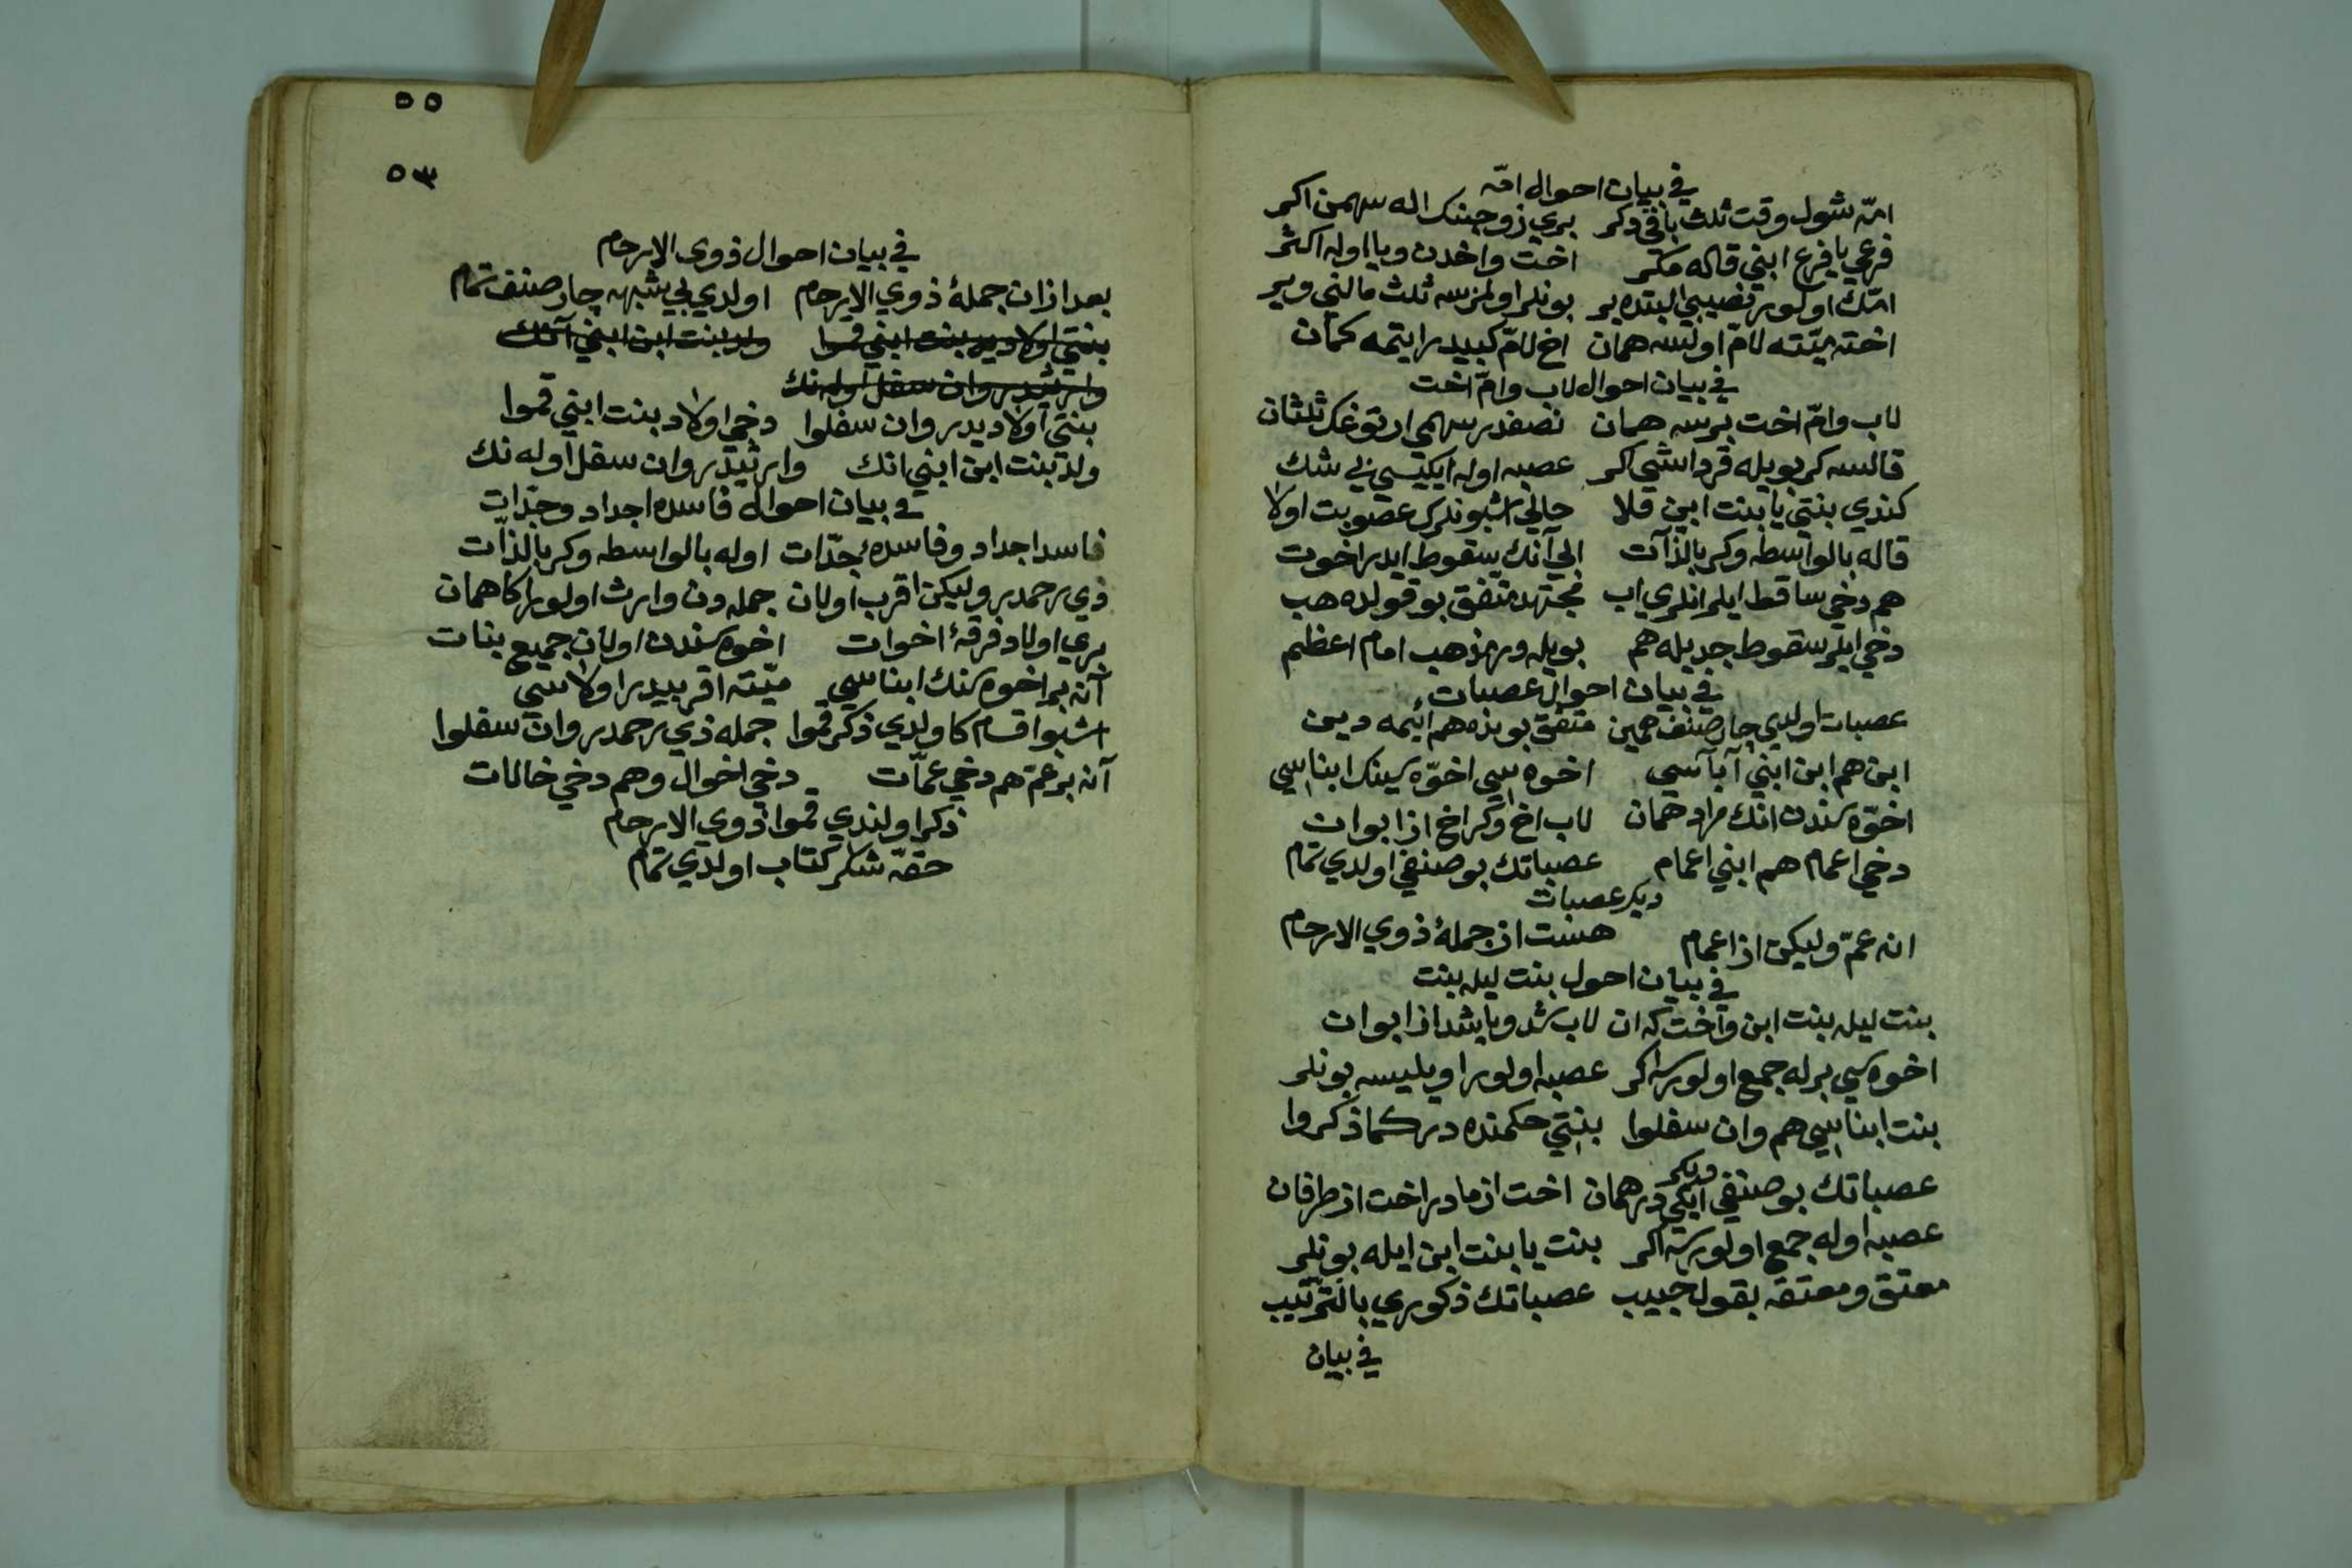 في بيان احوال امّه
امّه شول وقت ثلث باقى دكر بري زوجينك اله سهمن اكر
فرعي يا فرع ابني قاله مكر اخت واخدن ويا اوله اكثر
امّك اولور نصيبي البتده بر بونلر اولمزسه ثلث مالني وير
اخته ميّته لامّ اولسه همان اخ لامّ كبيدر ايتمه كمان
في بيان احوال لاب وامّ اخت
لاب وامّ اخت برسه همان نصفدر سهمي ارتوغك ثلثان
قالسه كر بويله قرداشي اكر عصبه اوله ايكيسي بي شك
كندي بنتي يا بنت ابين قلا حالي اشبونلرك عصوبت اولا
قاله بالواسطه وكر بالذات الي آنك سقوط ايدر اخوت
هم دخي ساقط ايلر انلري اب مجتهد متّفق بو قولده هب
دخي ايلر سقوط جديله هم بويله در مذهب امام اعظم
في بيان احوال عصبات
عصبات اولدي چار صنف همين متفق بونده هم ائيمه دين
ابن هم ابن ابني آباسي اخوه سي اخوّه سينك ابناسي
اخوّه سندن انك مراد همان لاب اخ وكر اخ از ابوان
دخي اعمام هم ابني اعمام عصباتك بو صنفي اولدي تمام
ديكر عصبات
انه عمّ وليكن از اعمام هست از جملهٔ ذوي الارحام
في بيان احول بنت ليله بنت
بنت ليله بنت ابن واخت كه ان لاب شد ويا بشد از ابوان
اخوه سي برله جمع اولورسه اكر عصبه اولور اويليسه بونلر
بنت ابناسي هم وان سفلوا بنتي حكمنده در كما ذكروا
ديكر
عصباتك بو صنفي ايكي در همان اخت از مادر اخت از طرفان
عصبه اوله جمع اولورسه اكر بنت يا بنت ابن ايله بونلر
معتق ومعتقه بقول حبيب عصباتك ذكوري بالترتيب
في بيان
٥٥
٥٣
في بيان احوال ذوى الارحام
بعد ازان جملهٔ ذوي الارحام اولدي بي شبهه چار صنف تمام
بنتي اولاديدر بنت ابني قموا ولد بنت ابن ابني آنك
وارثيدر وان سفل اوله نك
بنتي اولاديدر وان سفلوا دخي اولاد بنت ابني قموا
ولد بنت ابن ابني انك وارثيدر وان سفل اوله نك
في بيان احوال فاسده اجداد وجدّات
فاسد اجداد وفاسدهٔ جدّات اوله بالواسطه وكر بالذات
ذي رحمدر وليكن اقرب اولان جمله دن وارث اولور اكا همان
بري اولاد فرقهٔ اخوات اخوه سندن اولان جميع بنات
آن بر اخوه سنك ابناسي ميّته اقربيدر اولاسي
اشبو اقسام كا ولدي ذكر قموا جمله ذي رحمدر وان سفلوا
آن بر عمّ هم دخي عمّات دخي اخوال وهم دخي خالات
ذكر اولندي قموا ذوي الارحام
حقّه شكر كتاب اولدي تمام